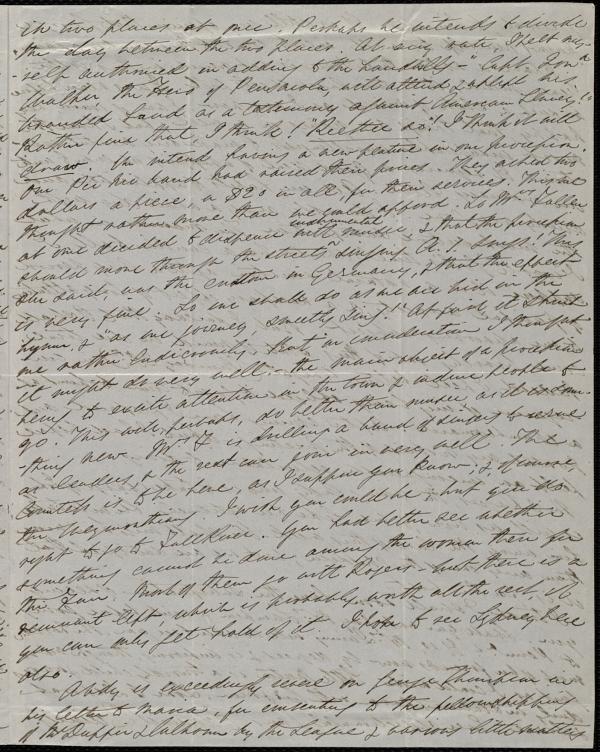 in two places at once. Perhaps he intends to divide
the day between the two places. At any rate, I felt my-
self authorised in adding to the handbills - "Capt. Jon.a
Walker, the Hero of Pensacola, will attend & uplift his
branded hand as a testimony against American Slavery!"
Rather fine that, I think! "Reether so"! I think it will
draw. We intend having a new feature in our procession.
our Pic Nic band had raised their prices. They asked two
dollars a piece, or $20 in all, for their services. This we
thought rather more than we could afford. So Mrs Follen
at once decided to dispense with instrumental music, & that the procession
should move through the streets singing A. S. songs. This
she said, was the custom in Germany, & that the effect
is very fine. So we shall do as we are bid in the
hymn, & "as we journey sweetly sing"! At first, it struck
me rather ludicrously. But, on consideration I thought
it might do very well - the main object of a procession
being to excite attention in the town & induce people to
go. This will, perhaps, do better than music, as it is some-
thing new. Mrs F. is drilling a band of singers to serve
as leaders, & the rest can join in very well. The
Contest is to be here, as I suppose you know; & of course,
the Weymouthians. I wish you could be; but you do
right to go to Fall River. You had better see whether
something cannot be done among the women there for
the Fair. Most of them go with Rogers - but there is a
remnant left, which is probably worth all the rest, if
you can only get hold of it. I hope to see Sydney here
also.
Abdy is exceedingly severe on George Thompson in
his letter to Maria, for consenting to the fellowshipping
of McDuffie & Calhoun by the League & various little matters